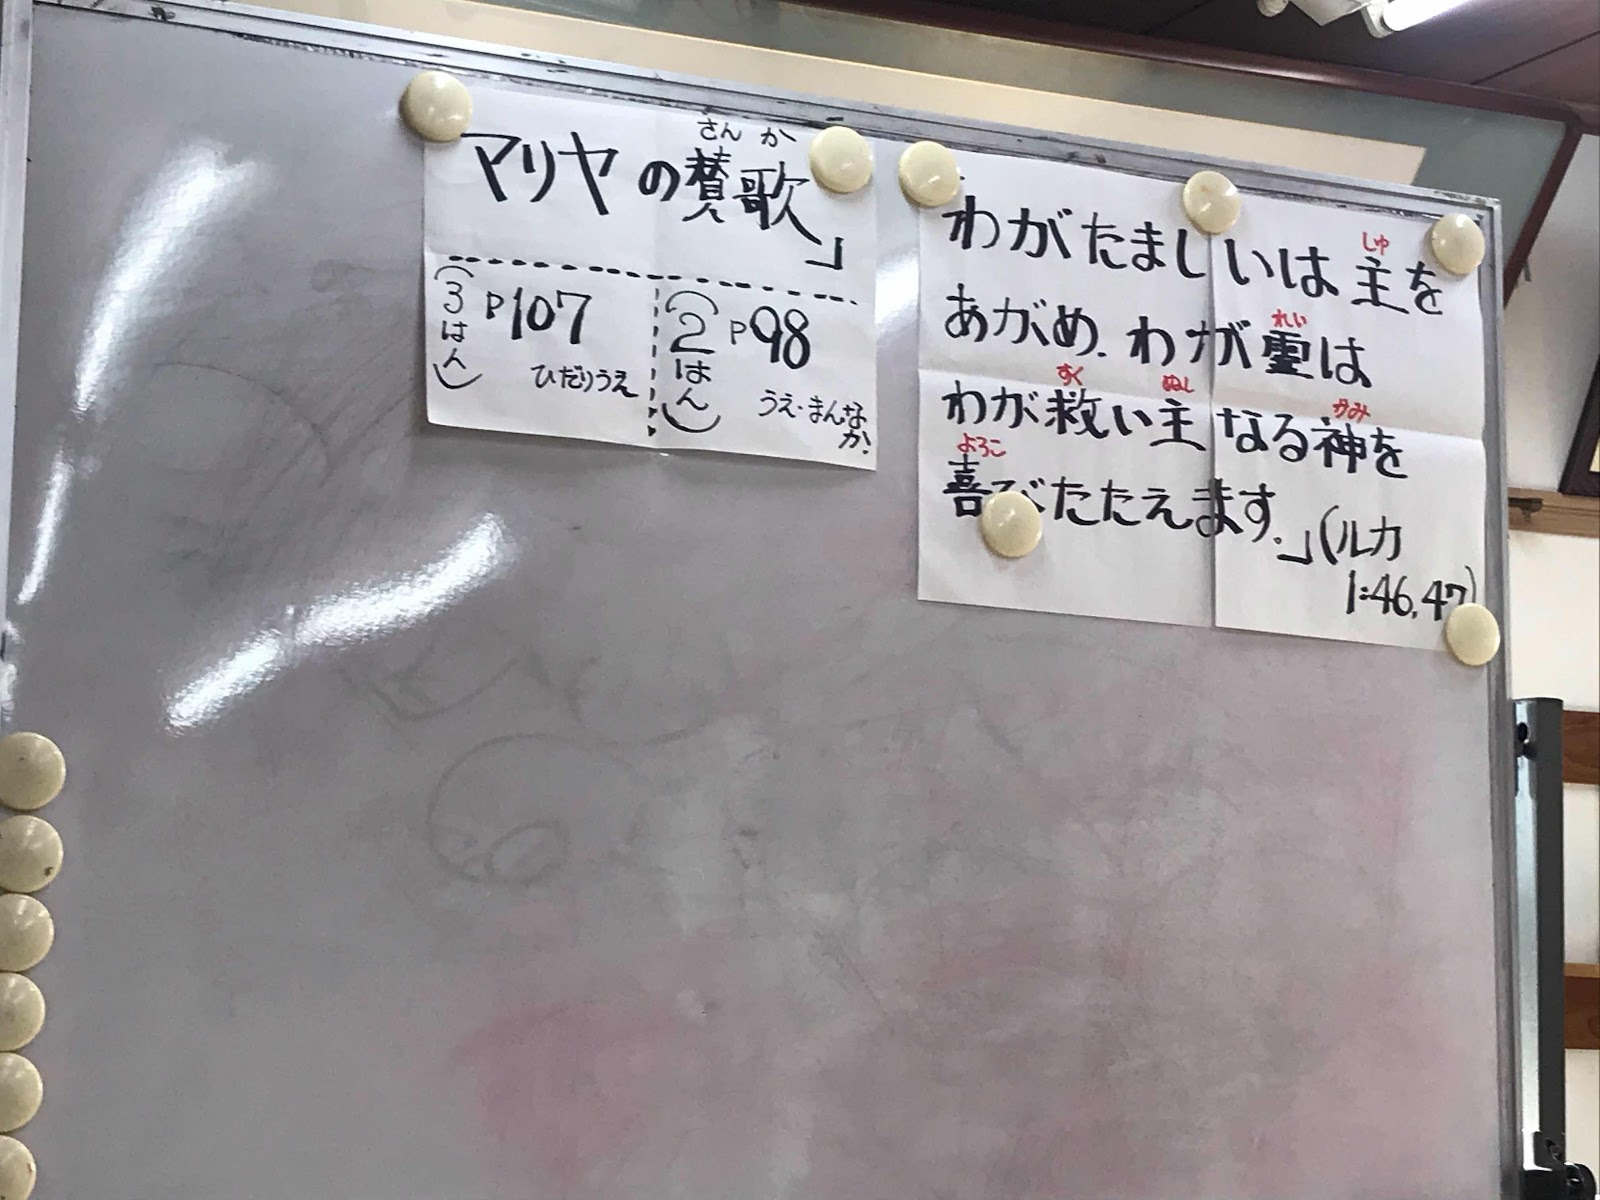 さんか
マリヤの賛歌」
(3はん) P107
ひだりうえ
(2はん) P98
うえ・まんなか.
しゅ
わがたましいは主を
れい
あがめ.わが霊は
すく ぬし かみ
わが救い主なる神を
よろこ
喜びたたえます.」(ルカ
1:46,47)